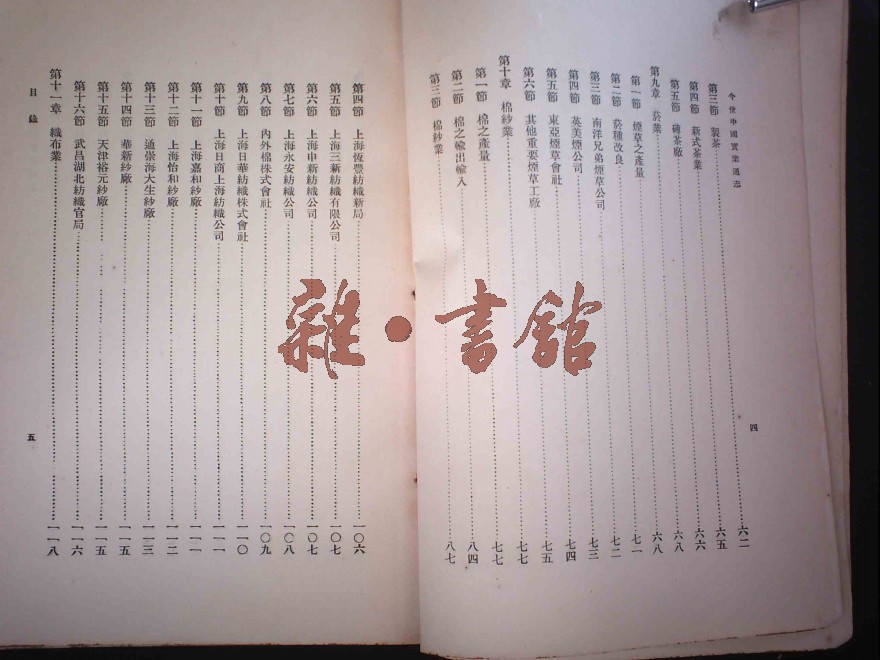 今世中國實業通志
四
第三節 製茶……六二
第四節 新式茶業……六五
第五節 磚茶廠……六六
第九章 菸業……六八
第一節 煙草之產量……六八
第二節 菸種改良……七一
第三節 南洋兄弟煙草公司……七二
第四節 英美煙公司……七三
第五節 東亞煙草會社……七四
第六節 其他重要煙草工廠……七五
第十章 棉紗業……七七
第一節 棉之產量……七七
第二節 棉之輸出輸入……八四
第三節 棉紗業……八七
第四節 上海恆豐紡織新局……一〇六
第五節 上海三新紡織有限公司……一〇七
第六節 上海申新紡織公司……一〇七
第七節 上海永安紡織公司……一〇八
第八節 內外棉株式會社……一〇九
第九節 上海日華紡織株式會社……一一〇
第十節 上海日商上海紡織公司……一一一
第十一節 上海嘉和紗廠……一一一
第十二節 上海怡和紗廠……一一二
第十三節 通崇海大生紗廠……一一三
第十四節 華新紗廠……一一五
第十五節 天津裕元紗廠……一一五
第十六節 武昌湖北紡織官局……一一六
第十一章 織布業……一一八
目錄
五
雜·書館